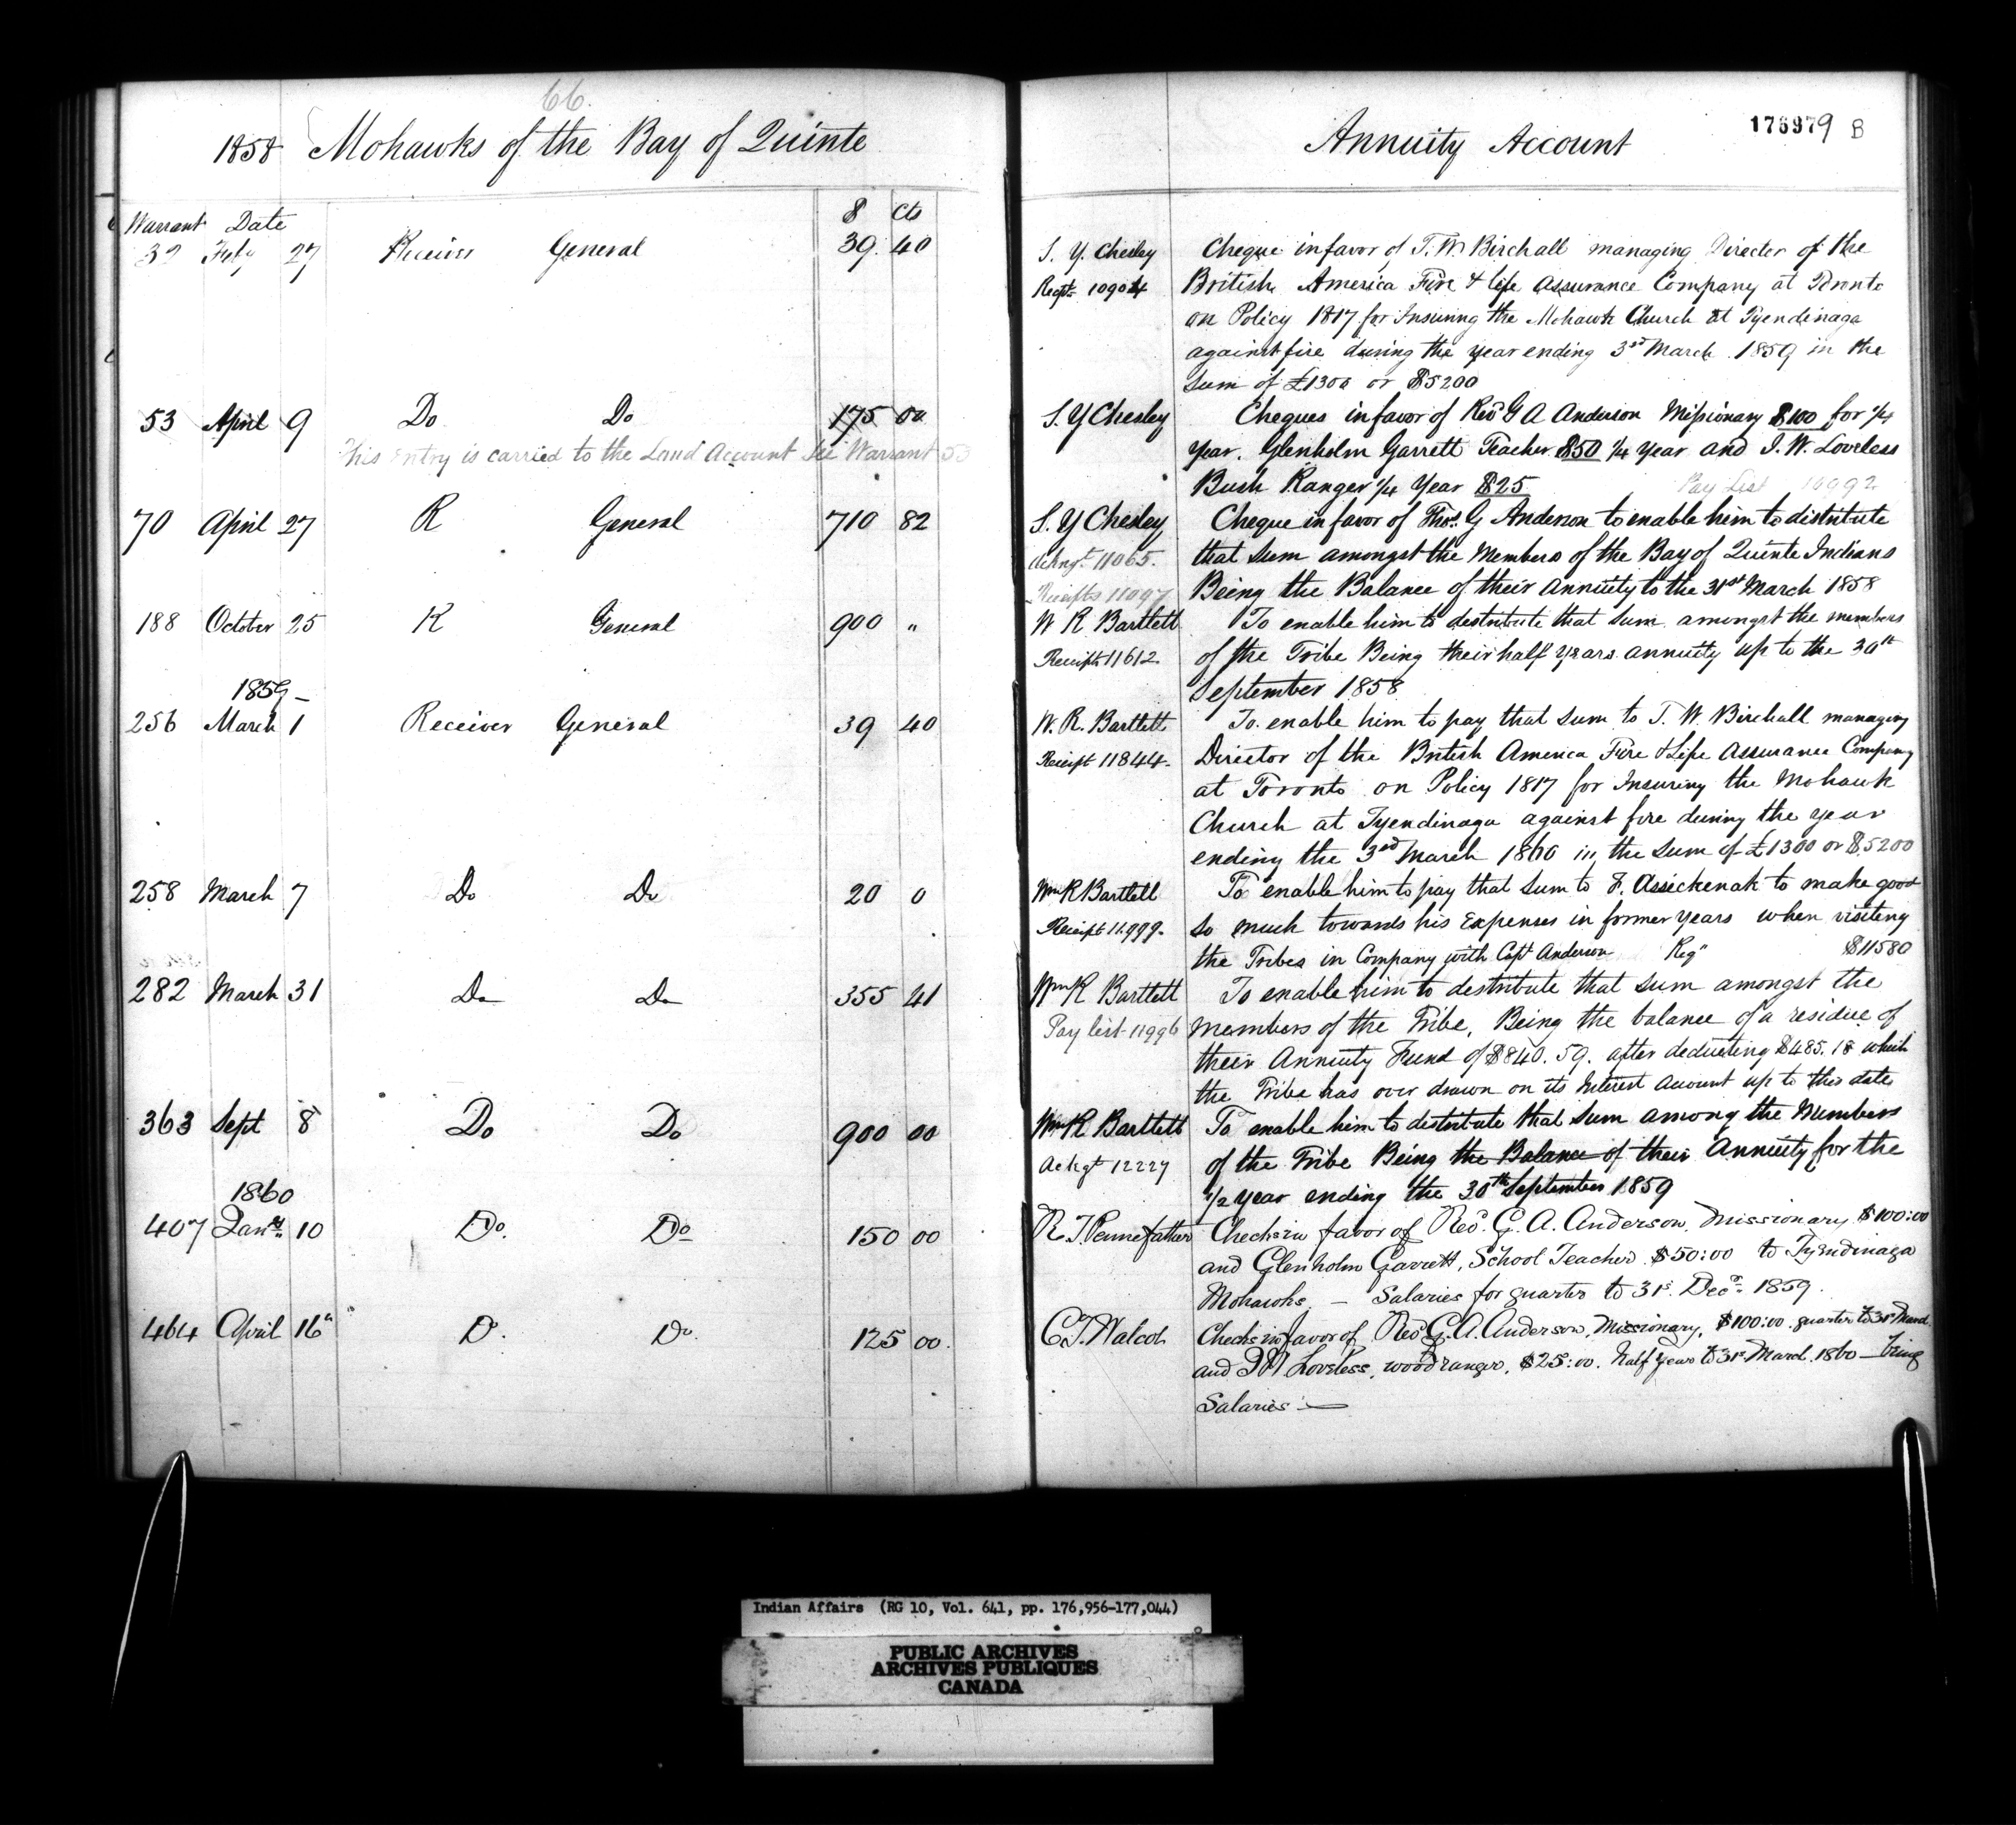 66.
1858 Mohawks of the Bay of Quinte
Warrant Date $ Cts
32 Feby 27 Receiver General 39. 40
53 April 9 Do Do 175 00
This Entry is carried to the Land Account See Warrant 53
70 April 27 R General 710 82
188 October 25 R General 900 "
1859
256 March 1 Receiver General 39 40
258 March 7 Do Do 20 0
282 March 31 Do Do 355 41
363 Sept 8 Do Do 900 00
1860
407 Jany 10 Do. Do 150 00
464 April 16th D. Do. 125 00.
Annuity Account
176979 B
S. Y. Chesley Cheque in favor of T. W. Birchall managing Director of the
Recpt 10904 British America Fire & life Assurance Company at Toronto
on Policy 1817 for Insuring the Mohawk Church at Tyendinaga
against fire during the year ending 3rd March 1859 in the
Sum of £1300 or $5200
S. Y Chesley Cheques in favor of Revd G A Anderson Missionary $100 for 1/4
year. Glenholm Garrett Teacher $50 1/4 year and J. W. Loveless
Bush Ranger 1/4 Year $25 Pay List 10992
S. Y Chesley Cheque in favor of Thos. G Anderson to enable him to distribute
Ackngt. 11065. that Sum amongst the Members of the Bay of Quinte Indians
Receipts 11097 Being the Balance of their Annuity to the 31st March 1858
W R Bartlett To enable him to destribute that sum amongst the members
Receipts 11612. of the Tribe Being their half years annuity up to the 30th
September 1858
W. R. Bartlett To enable him to pay that sum to T. W. Birchall managing
Receipt 11844. Director of the British America Fire & Life Assurance Company
at Toronto on Policy 1817 for Insuring the Mohawk
Church at Tyendinaga against fire during the year
ending the 3rd March 1860 in the Sum of £1300 or $5200
Wm R Bartlett To enable him to pay that sum to F. Assickenak to make good
Receipt 11.999. so much towards his Expenses in former years when visiting
the Tribes in Company with Capt Anderson Reg" $11580
Wm R Bartlett To enable him to destribute that sum amongst the
Pay list 11996 members of the Tribe, Being the balance of a residue of
their Annuity Fund of $840. 59. after deducting $485. 18 which
the Tribe has over drawn on its Interest Account up to this date
Wm R Bartlett To enable him to destribute that sum among the Members
Ackgt 12227 of the Tribe Being the Balance of their Annuity for the
1/2 year ending the 30th September 1859
R. T. Pennefather Checks in favor of Revd. G. A. Anderson, Missionary $100:00
and Glenholm Garrett, School Teacher $50:00 to Tyendinaga
Mohawks, — Salaries for quarter to 31st. Decr. 1859.
C. T. Walcot Checks in favor of Revd G. A. Anderson, Missionary, $100:00. quarter to 31st March.
and J W Loveless, wood ranger, $25:00. half year to 31st March. 1860 — being
Salaries —
Indian Affairs (RG 10, Vol. 641, pp. 176,956-177,044)
PUBLIC ARCHIVES
ARCHIVES PUBLIQUES
CANADA